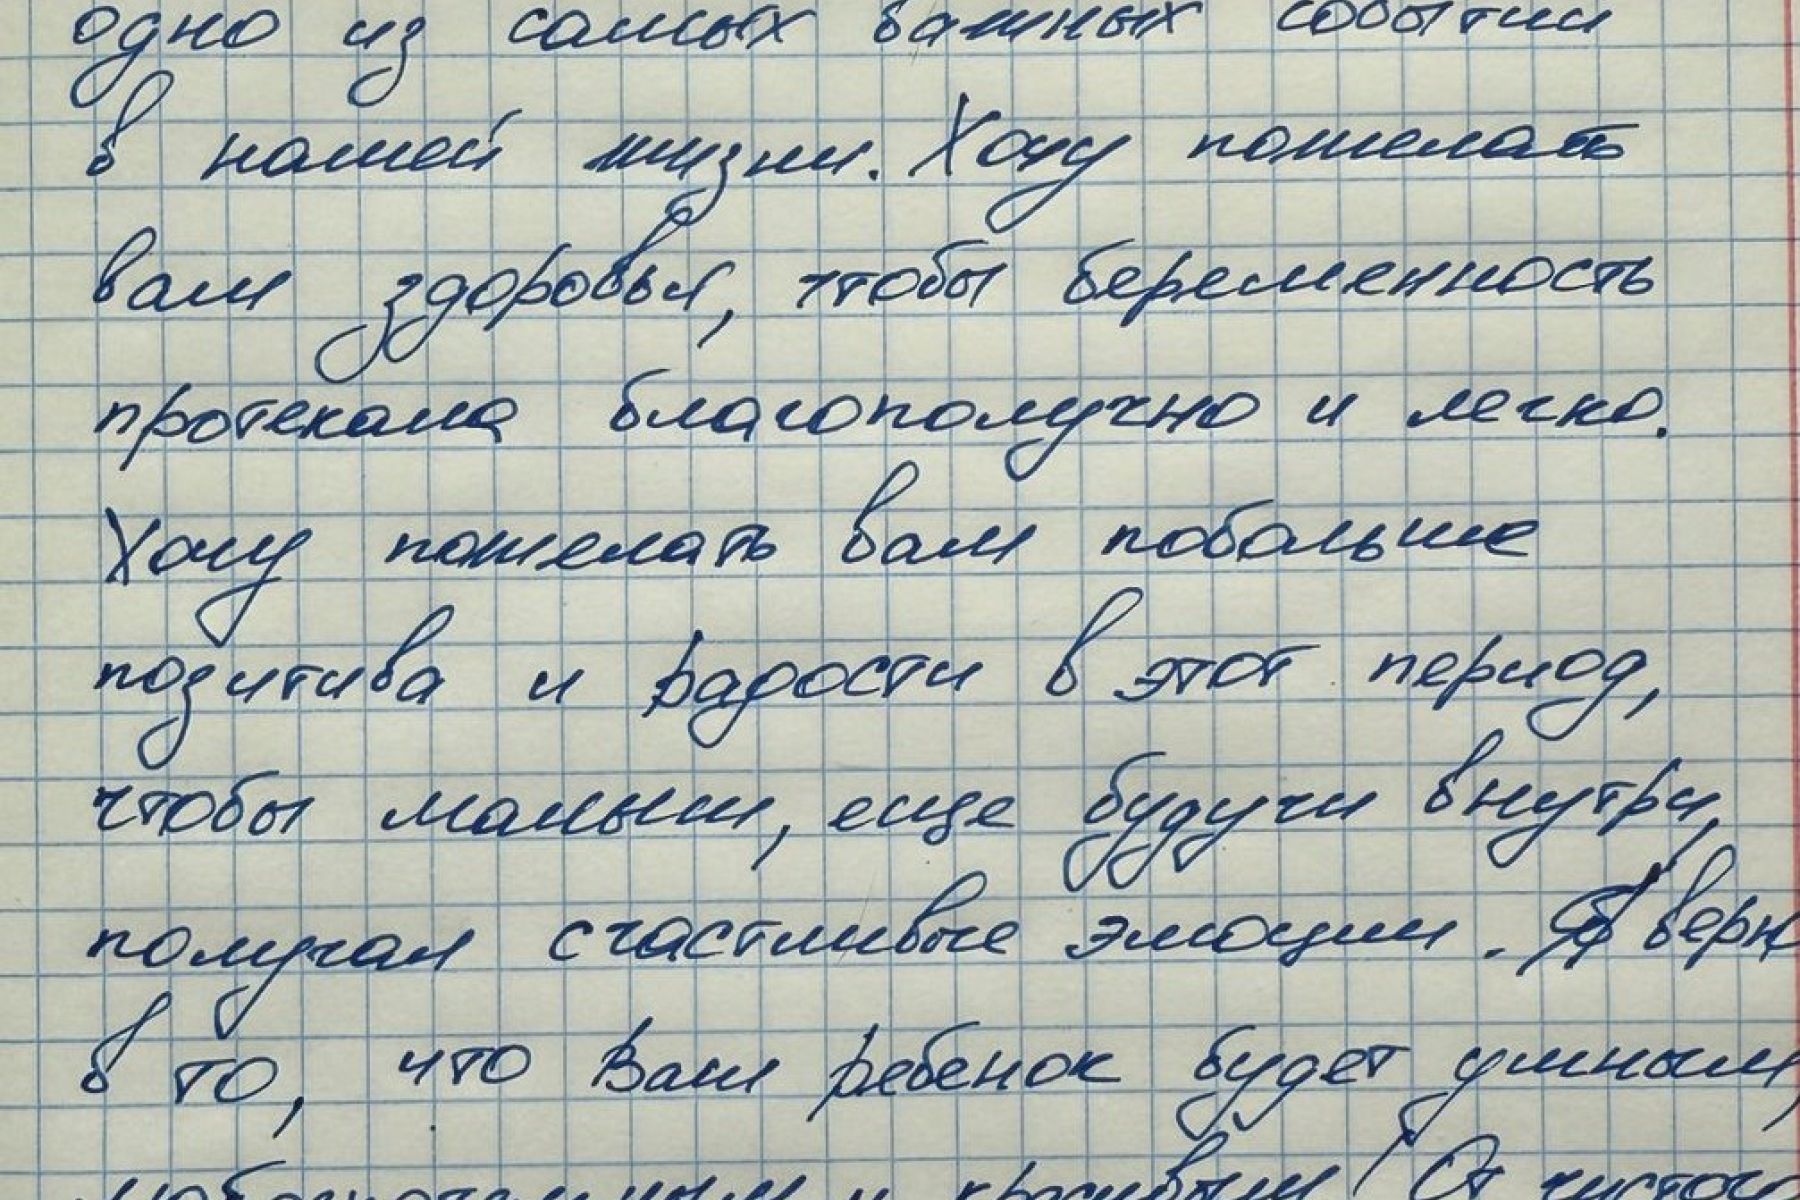 одно из самых важных событий
в нашей жизни. Хочу пожелать
вам здоровья, чтобы беременность
протекала благополучно и легко.
Хочу пожелать вам побольше
позитива и радости в этот период,
чтобы малыш, еще будучи внутри,
получал счастливые эмоции. Я верю
в то, что Ваш ребенок будет умным,
любознательным и красивым! От чистого